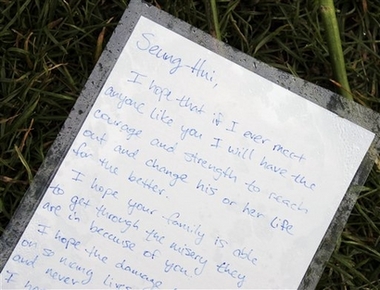 Seung-Hui,
I hope that if I ever meet
anyone like you I will have the
courage and strength to reach
out and change his or her life
for the better.
I hope your family is able
to get through the misery they
are in because of you
I hope the damage
on so many lives
and never
I